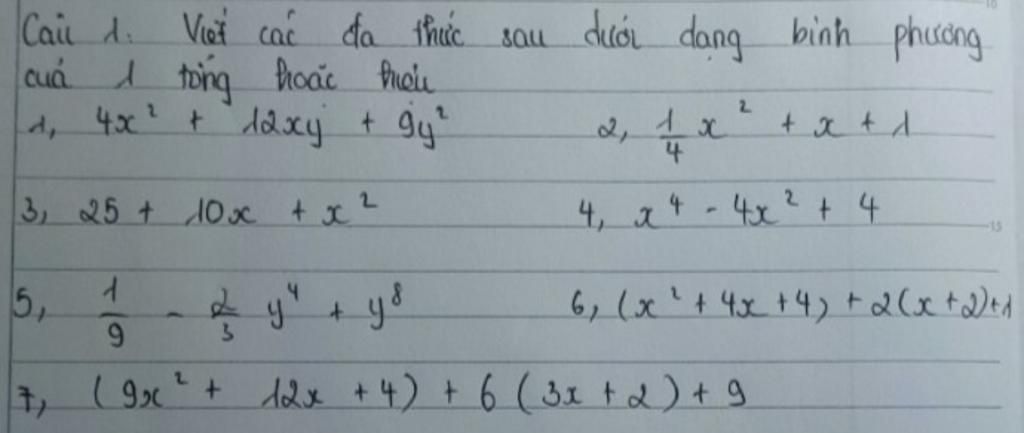 Câu 1. Viết các đa thức sau dưới dạng bình phương
của 1 tổng hoặc hiệu
1, 4x² + 12xy + 9y² 2, 1/4 x² + x + 1
3, 25 + 10x + x² 4, x⁴ - 4x² + 4
5, 1/9 - 2/3 y⁴ + y⁸ 6, (x² + 4x + 4) + 2(x+2)+1
7, (9x² + 12x + 4) + 6 (3x + 2) + 9